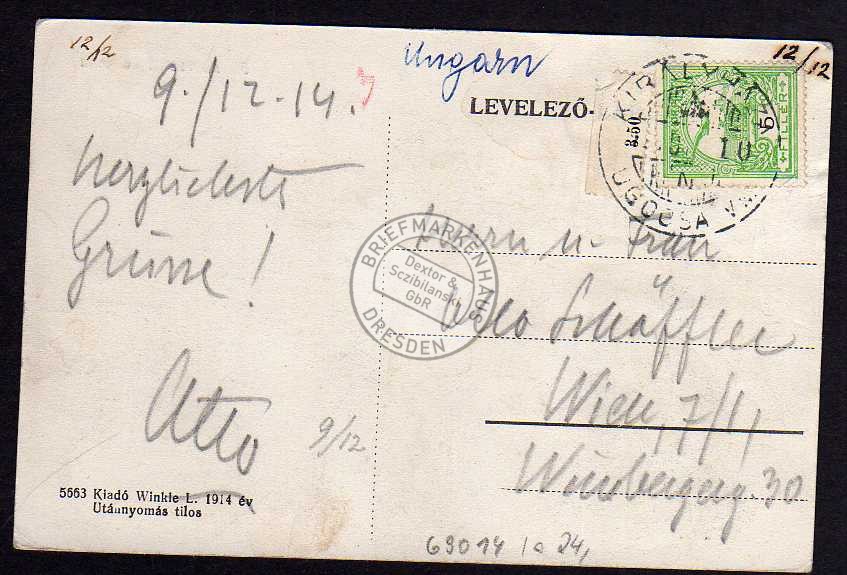 12/12
Ungarn
12/12
9./12.14.
LEVELEZŐ-
3.50
5
FILLÉR
KIRÁLYHÁZ
10
UGOCSA V
Herzlichste
Grüsse!
Otto
9/12
Herrn u. Frau
Schäffler
Wien, 7/1,
30
BRIEFMARKENHAUS
Dextor &
Sczibilanski
GbR
DRESDEN
5663 Kiadó Winkle L. 1914 év
Utánnyomás tilos
69014 10 24,